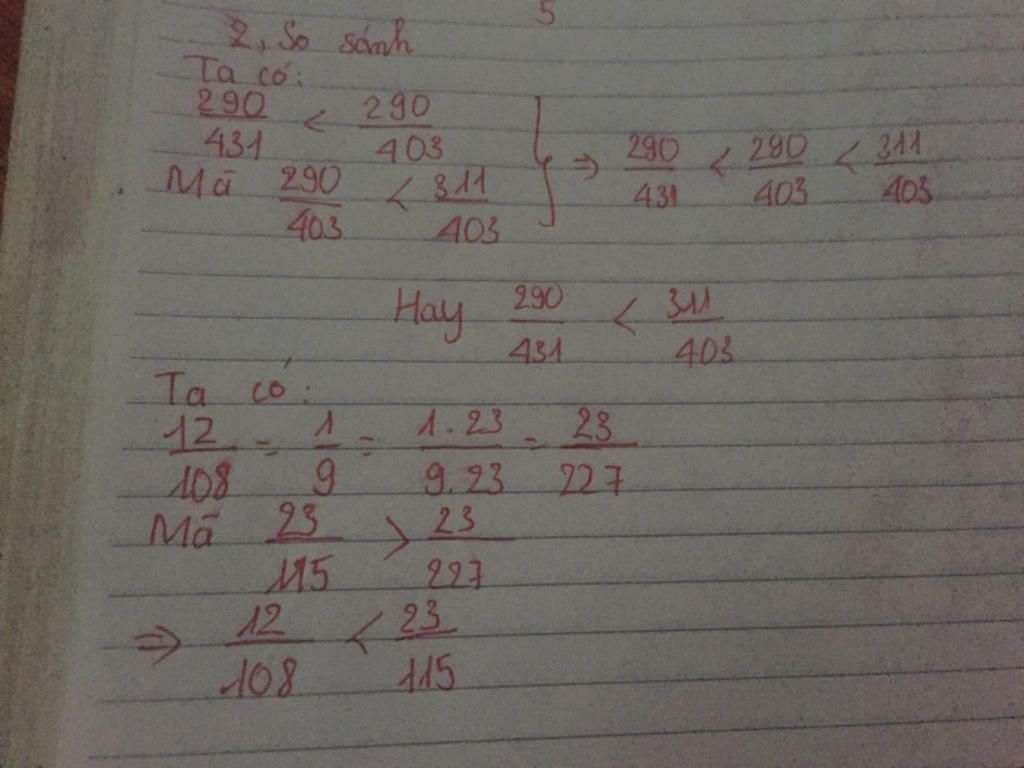 5
2, So sánh
Ta có:
290/431 < 290/403
Mà 290/403 < 311/403 } ⇒ 290/431 < 290/403 < 311/403
Hay 290/431 < 311/403
Ta có:
12/108 = 1/9 = 1.23/9.23 = 23/227
Mà 23/115 > 23/227
⇒ 12/108 < 23/115